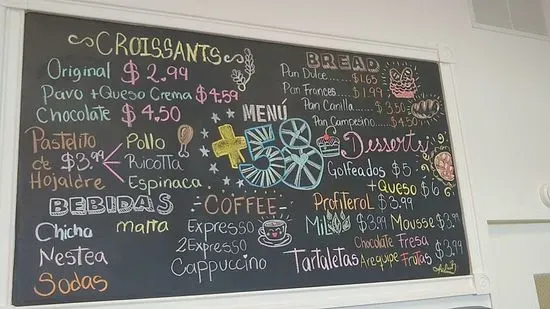 CROISSANTS
Original $2.99
Pavo + Queso Crema $4.59
Chocolate $4.50
Pastelito de $3.99 Hojaldre
Pollo
Ricotta
Espinaca
BEBIDAS
Chicha malta
Nestea
Sodas
MENÚ
+58
COFFEE
Expresso
2Expresso
Cappuccino
BREAD
Pan Dulce......$1.65
Pan Frances......$1.99
Pan Canilla......$3.50
Pan Campesino....$4.50
Desserts
Golfeados $5
+ Queso $6
Profiterol $3.99
Milhojas $3.99 Mousse $3.99
Chocolate Fresa
Tartaletas Arequipe Frutas $3.99